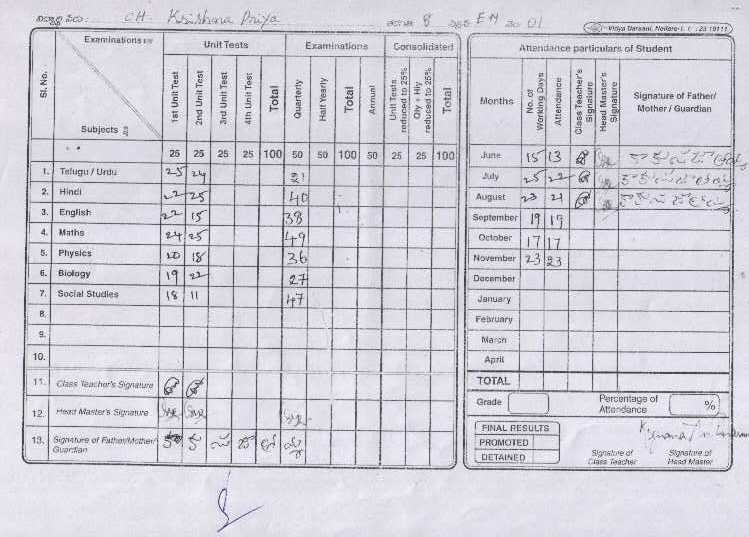 విద్యార్థి పేరు CH. Krishna Priya తరగతి 8 సెక్షన్ EM నెం 01
Vidya Darsani, Nellore-1.
Examinations Unit Tests Examinations Consolidated
Sl. No. Subjects 1st Unit Test 2nd Unit Test 3rd Unit Test 4th Unit Test Total Quarterly Half Yearly Total Annual Unit Tests reduced to 25% Qly + Hly reduced to 25% Total
25 25 25 25 100 50 50 100 50 25 25 100
1. Telugu / Urdu 25 24 21
2. Hindi 22 25 40
3. English 22 15 38
4. Maths 24 25 49
5. Physics 20 18 36
6. Biology 19 22 27
7. Social Studies 18 11 47
8.
9.
10.
11. Class Teacher's Signature
12. Head Master's Signature
13. Signature of Father/Mother/
Guardian
Attendance particulars of Student
Months No. of Working Days Attendance Class Teacher's Signature Head Master's Signature Signature of Father/ Mother / Guardian
June 15 13
July 25 22
August 23 21
September 19 19
October 17 17
November 23 23
December
January
February
March
April
TOTAL
Grade Percentage of Attendance %
FINAL RESULTS
PROMOTED
DETAINED
Signature of Class Teacher
Signature of Head Master